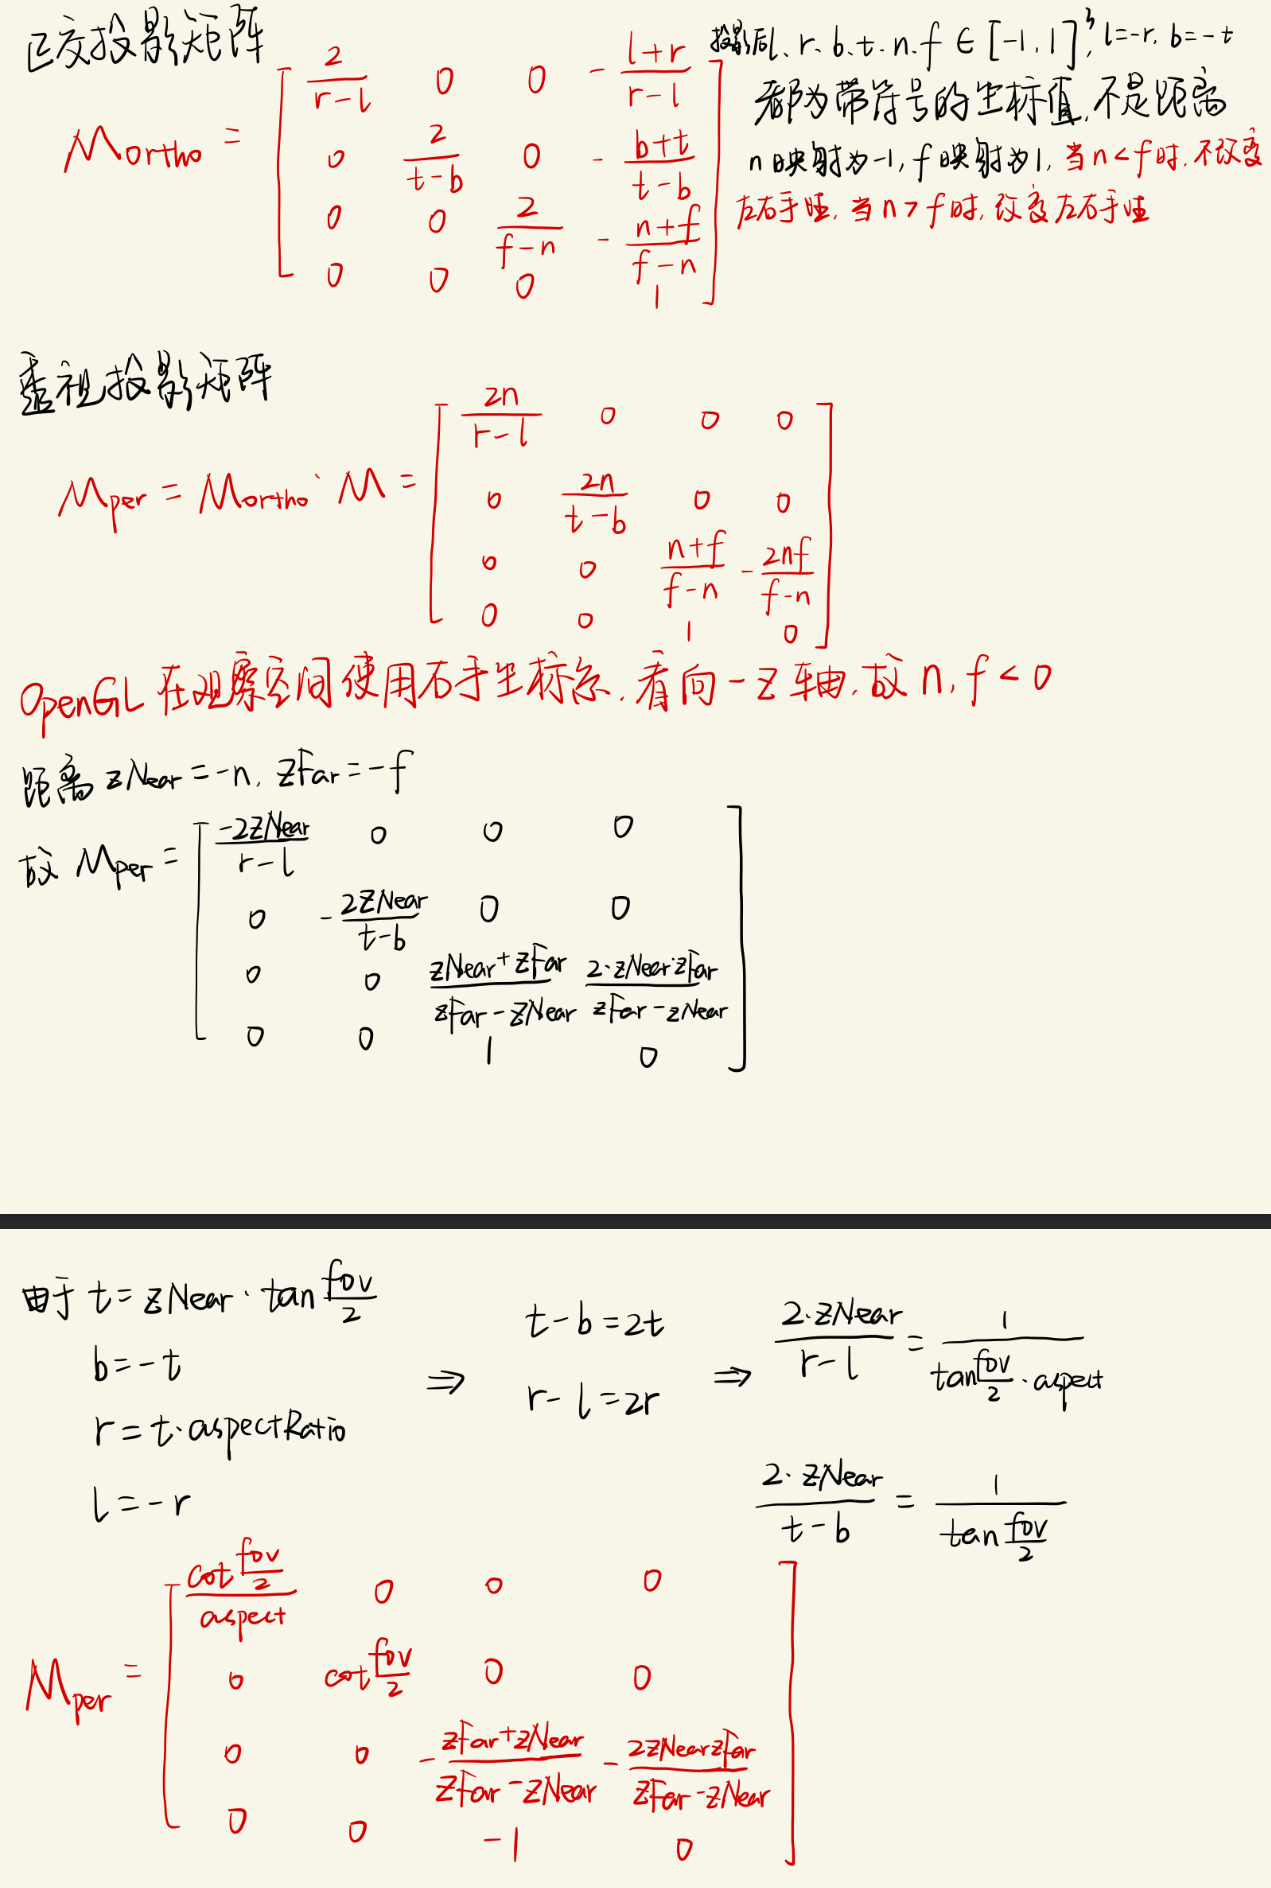 正交投影矩阵
投影后l、r、b、t、n、f ∈ [-1, 1]³, l=-r, b=-t
都为带符号的坐标值,不是距离
n映射为-1, f映射为1, 当n<f时,不改变
左右手性,当n>f时,改变左右手性
Mortho = [ 2/(r-l) 0 0 -(l+r)/(r-l)
0 2/(t-b) 0 -(b+t)/(t-b)
0 0 2/(f-n) -(n+f)/(f-n)
0 0 0 1 ]
透视投影矩阵
Mper = Mortho · M = [ 2n/(r-l) 0 0 0
0 2n/(t-b) 0 0
0 0 (n+f)/(f-n) -2nf/(f-n)
0 0 1 0 ]
OpenGL 在观察空间使用右手坐标系,看向-Z轴,故 n, f < 0
距离 zNear = -n, zFar = -f
故 Mper = [ -2zNear/(r-l) 0 0 0
0 -2zNear/(t-b) 0 0
0 0 (zNear+zFar)/(zFar-zNear) 2·zNear·zFar/(zFar-zNear)
0 0 1 0 ]
由于 t = zNear · tan fov/2
b = -t
r = t · aspectRatio
l = -r
⇒ t-b = 2t
r-l = 2r
⇒ 2·zNear/(r-l) = 1/(tan fov/2 · aspect)
2·zNear/(t-b) = 1/(tan fov/2)
Mper = [ cot fov/2 / aspect 0 0 0
0 cot fov/2 0 0
0 0 -(zFar+zNear)/(zFar-zNear) -2zNearzFar/(zFar-zNear)
0 0 -1 0 ]